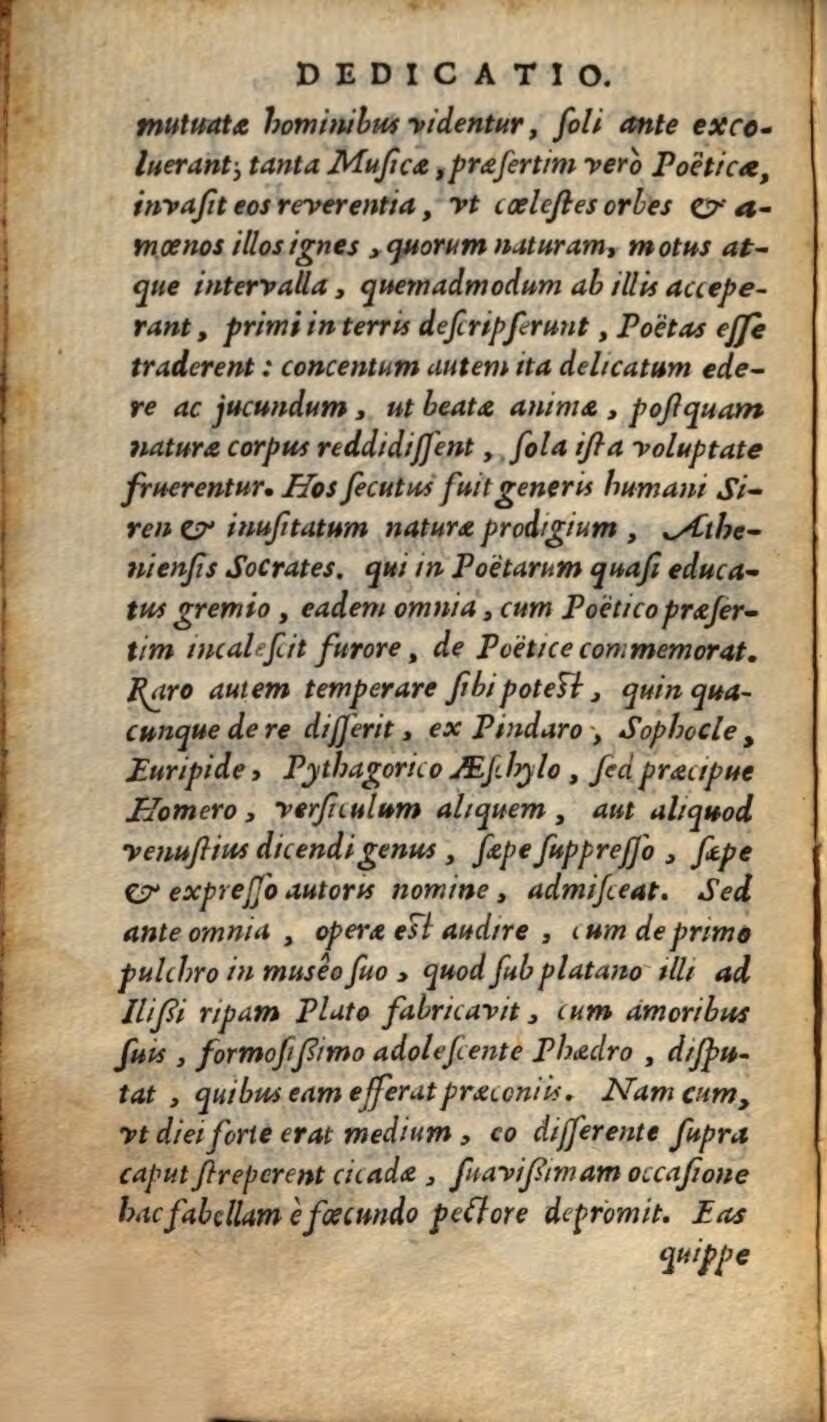 DEDICATIO.
mutuatæ hominibus videntur, ſoli ante exco-
luerant; tanta Muſicæ, præſertim verò Poëticæ,
invaſit eos reverentia, vt cœleſtes orbes & a-
mœnos illos ignes, quorum naturam, motus at-
que intervalla, quemadmodum ab illis accepe-
rant, primi in terris deſcripſerunt, Poëtas eſſe
traderent: concentum autem ita delicatum ede-
re ac jucundum, ut beatæ animæ, poſtquam
naturæ corpus reddidiſſent, ſola iſta voluptate
fruerentur. Hos ſecutus fuit generis humani Si-
ren & inuſitatum naturæ prodigium, Athe-
nienſis Socrates. qui in Poëtarum quaſi educa-
tus gremio, eadem omnia, cum Poëtico præſer-
tim incaleſcit furore, de Poëtice commemorat.
Raro autem temperare ſibi poteſt, quin qua-
cunque de re diſſerit, ex Pindaro, Sophocle,
Euripide, Pythagorico Æſchylo, ſed præcipue
Homero, verſiculum aliquem, aut aliquod
venuſtius dicendi genus, ſæpe ſuppreſſo, ſæpe
& expreſſo autoris nomine, admiſceat. Sed
ante omnia, operæ eſt audire, cum de primo
pulchro in musêo ſuo, quod ſub platano illi ad
Iliſſi ripam Plato fabricavit, cum amoribus
ſuis, formoſiſſimo adoleſcente Phædro, diſpu-
tat, quibus eam efferat præconiis. Nam cum,
vt diei forte erat medium, eo diſſerente ſupra
caput ſtreperent cicadæ, ſuaviſſimam occaſione
hac fabellam è fœcundo pectore depromit. Eas
quippe